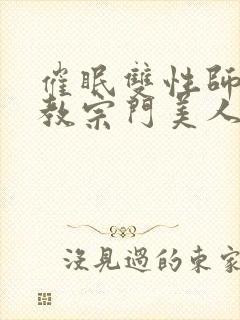 催眠雙性師
教宗門美人
沒見過的東家